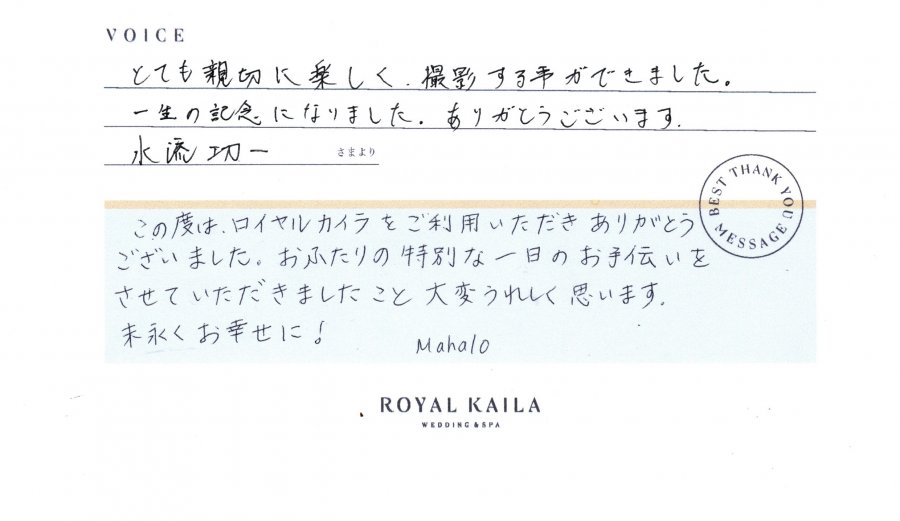 VOICE
とても親切に楽しく、撮影する事ができました。
一生の記念になりました。ありがとうございます。
水流功一 さまより
BEST THANK YOU MESSAGE
この度は、ロイヤルカイラをご利用いただきありがとう
ございました。おふたりの特別な一日のお手伝いを
させていただきましたこと大変うれしく思います。
末永くお幸せに!
Mahalo
ROYAL KAILA
WEDDING & SPA